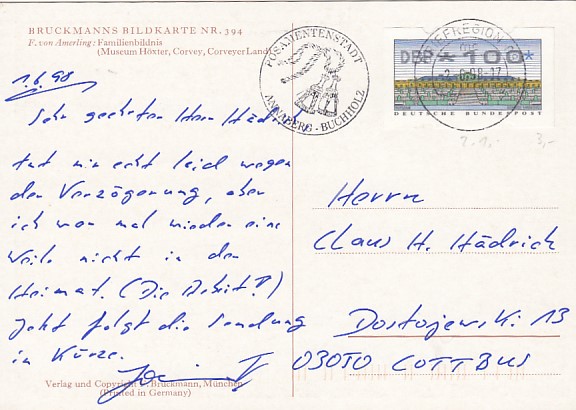 BRUCKMANNS BILDKARTE NR. 394
F. von Amerling: Familienbildnis
(Museum Höxter, Corvey, Corveyer Land)
1.6.98
Sehr geehrter Herr Hädrich
tut mir echt leid wegen
der Verzögerung, aber
ich war mal wieder eine
Weile nicht in der
Heimat. (Die Arbeit!)
Jetzt folgt die Sendung
in Kürze.
Verlag und Copyright F. Bruckmann, München
(Printed in Germany)
POSAMENTENSTADT
ANNABERG-BUCHHOLZ
BRIEFREGION
DBP *100*
DEUTSCHE BUNDESPOST
3,-
Herrn
Claus H. Hädrich
Dostojewski. 13
03050 COTTBUS